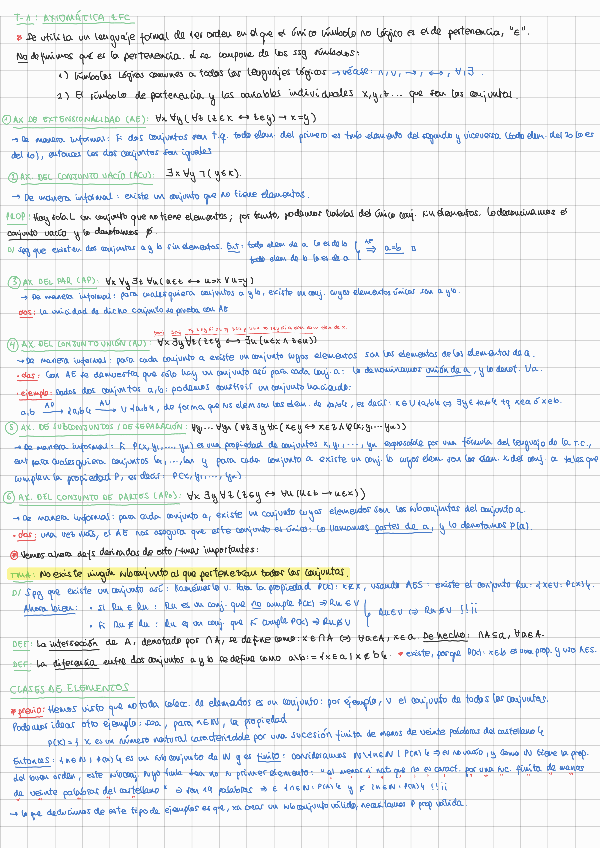 T-1: AXIOMÁTICA ZFC
* Se utiliza un lenguaje formal de 1er orden en el que el único símbolo no lógico es el de pertenencia, "∈".
No definimos qué es la pertenencia. Se compone de los ssg símbolos:
1) Símbolos lógicos comunes a todos los lenguajes lógicos → véase: ∧, ∨, →, ↔, ∀, ∃.
2) El símbolo de pertenencia y las variables individuales x, y, z... que son los conjuntos.
① AX. DE EXTENSIONALIDAD (AE): ∀x ∀y (∀z (z∈x ↔ z∈y) → x=y)
→ De manera informal: si dos conjuntos son t.q. todo elem. del primero es tmb elemento del segundo y viceversa (todo elem. del 2o lo es
del 1o), entonces los dos conjuntos son iguales
② AX. DEL CONJUNTO VACÍO (ACV): ∃x ∀y ¬(y∈x).
→ De manera informal: existe un conjunto que no tiene elementos.
PROP: Hay solo 1 un conjunto que no tiene elementos; por tanto, podemos hablar del único conj. sin elementos. Lo denominamos el
conjunto vacío y lo denotamos ∅.
D/ Spg que existen dos conjuntos a y b sin elementos. Ent: todo elem de a lo es de b
todo elem de b lo es de a } AE ⇒ a=b □
③ AX. DEL PAR (AP): ∀x ∀y ∃z ∀u (u∈z ↔ u=x ∨ u=y)
→ De manera informal: para cualesquiera conjuntos a y b, existe un conj. cuyos elementos únicos son a y b.
· obs: la unicidad de dicho conjunto se prueba con AE
④ AX. DEL CONJUNTO UNIÓN (AU): ∀x ∃y ∀z (z∈y ↔ ∃u (u∈x ∧ z∈u))
→ De manera informal: para cada conjunto a existe un conjunto cuyos elementos son los elementos de los elementos de a.
· obs: Con AE se demuestra que sólo hay un conjunto así para cada conj. a: lo denominamos unión de a, y lo denot. ∪a.
· ejemplo: Dados dos conjuntos a, b: podemos construir un conjunto haciendo:
a,b AP→ {a,b} AU→ ∪{a,b}, de forma que sus elem son los elem. de {a,b}, es decir: x∈∪{a,b} ⇔ ∃y∈{a,b} tq x∈a ó x∈b.
⑤ AX. DE SUBCONJUNTOS / DE SEPARACIÓN: ∀y1... ∀yn (∀z ∃y ∀x (x∈y ↔ x∈z ∧ φ(x, y1,...yn))
→ De manera informal: si P(x, y1,..., yn) es una propiedad de conjuntos x, y1,..., yn expresable por una fórmula del lenguaje de la T.C.,
ent para cualesquiera conjuntos b1,...,bn y para cada conjunto a existe un conj. b cuyos elem son los elem. x del conj. a tales que
cumplen la propiedad P, es decir: P(x, y1,..., yn)
⑥ AX. DEL CONJUNTO DE PARTES (APa): ∀x ∃y ∀z (z∈y ↔ ∀u (u∈z → u∈x))
→ De manera informal: para cada conjunto a, existe un conjunto cuyos elementos son los subconjuntos del conjunto a.
· obs: una vez más, el AE nos asegura que este conjunto es único: lo llamamos partes de a, y lo denotamos P(a).
* Vemos ahora defs derivadas de esto / tmas importantes:
TMA: No existe ningún subconjunto al que pertenezcan todos los conjuntos.
D/ Spg que existe un conjunto así: llamémoslo V. Para la propiedad P(x): x∉x, usando AES: existe el conjunto Ru: {x∈V: P(x)}.
Ahora bien: · Si Ru∈Ru: Ru es un conj. que no cumple P(x) ⇒ Ru∉V
· Si Ru∉Ru: Ru es un conj. que sí cumple P(x) ⇒
DEF: La intersección de A, denotado por ∩A, se define como: x∈∩A ⇔ ∀a∈A, x∈a. De hecho: ∩A⊆a, ∀a∈A.
DEF: La diferencia entre dos conjuntos a y b se define como a\b:= {x∈a | x∉b}. * existe, porque P(x): x∉b es una prop. y uso AES.
CLASES DE ELEMENTOS
* previo: Hemos visto que no toda colecc. de elementos es un conjunto: por ejemplo, V el conjunto de todos los conjuntos.
Podemos idear otro ejemplo: sea, para n∈ℕ, la propiedad
P(x) = { x es un número natural caracterizable por una sucesión finita de menos de veinte palabras del castellano }
Entonces: {n∈ℕ | P(n)} es un subconjunto de ℕ y es finito: consideramos ℕ\{n∈ℕ | P(n)} ⇒ es no vacío, y como ℕ tiene la prop.
del buen orden, este subconj. suyo tmb. Sea n su primer elemento: "el menor nº nat que no es caract. por una suc. finita de menos
de veinte palabras del castellano" ⇒ son 19 palabras ⇒
→ lo que deducimos de este tipo de ejemplos es que, para crear un subconjunto válido, necesitamos P prop válida.